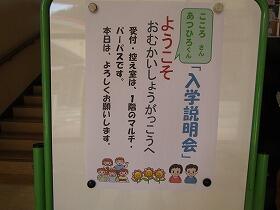 こころ さん
あつひろくん
「入学説明会」
ようこそ
おむかいしょうがっこうへ
受付・控え室は、1階のマルチ・
パーパスです。
本日は、よろしくお願いします。